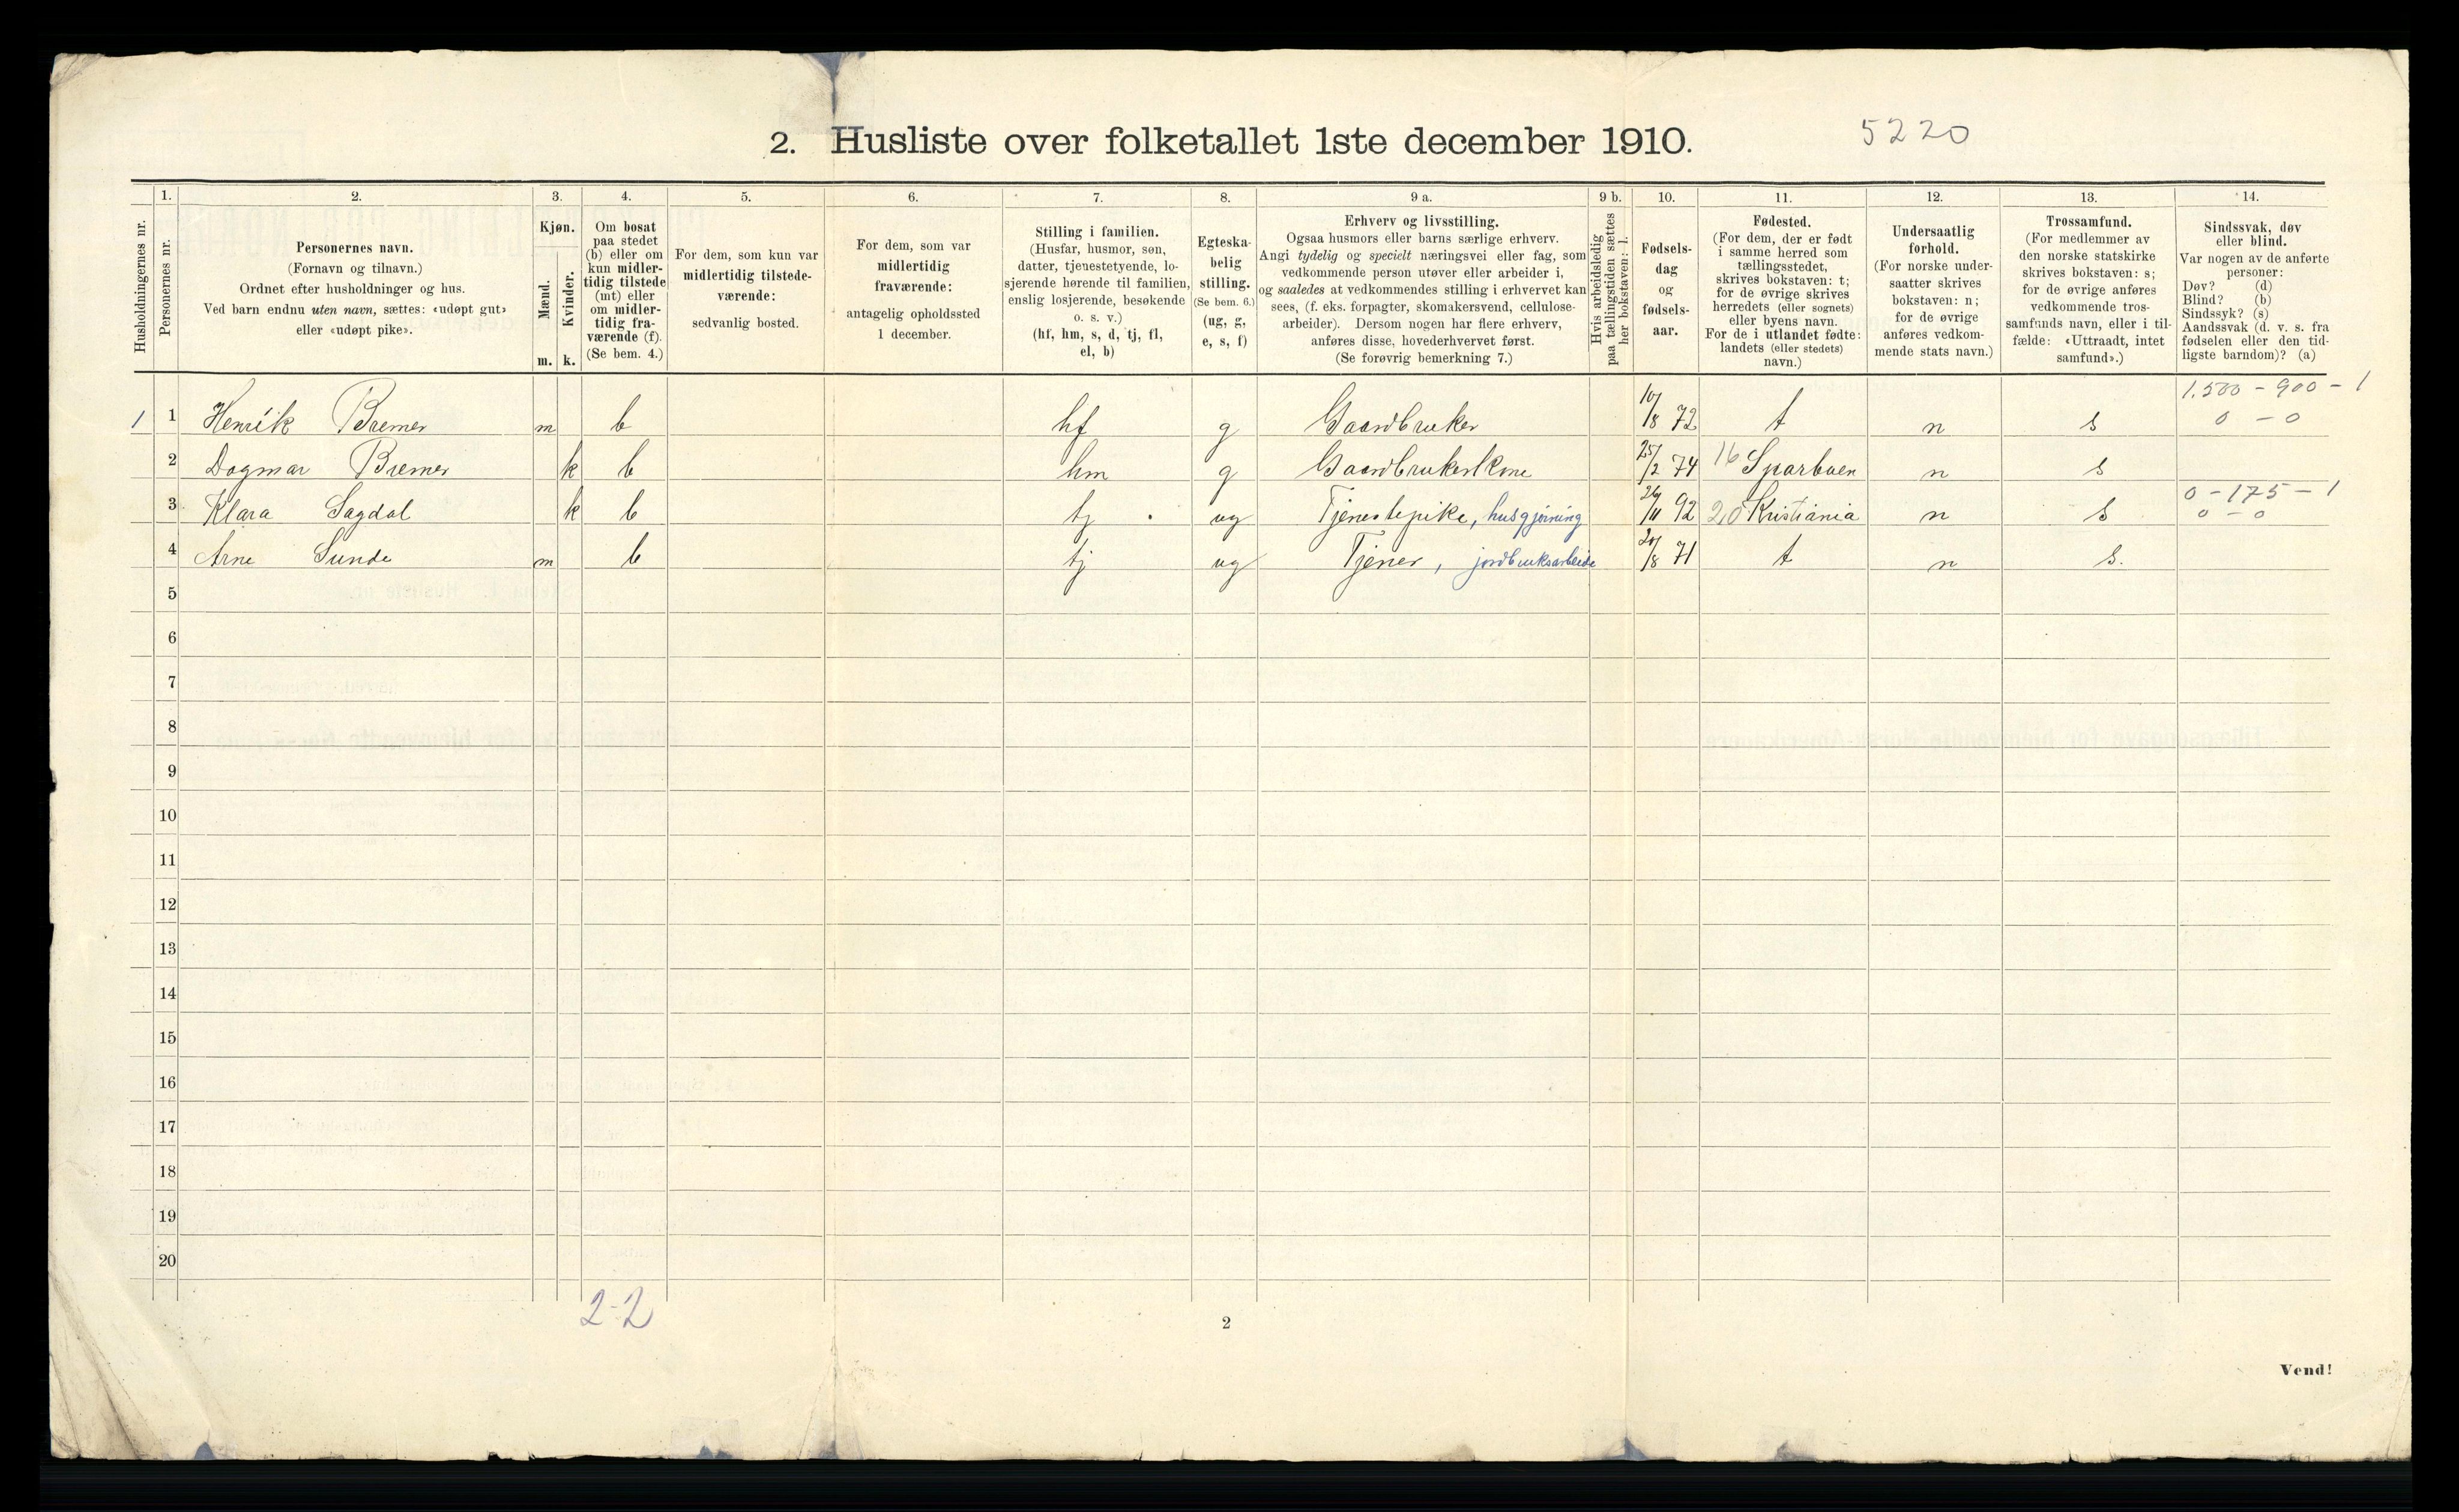 2. Husliste over folketallet 1ste december 1910. 5220
Husholdningernes nr.
1. Personernes nr.
2. Personernes navn.
(Fornavn og tilnavn.)
Ordnet efter husholdninger og hus.
Ved barn endnu uten navn, sættes: «udøpt gut»
eller «udøpt pike».
3. Kjøn.
Mænd. m.
Kvinder. k.
4. Om bosat
paa stedet
(b) eller om
kun midler-
tidig tilstede
(mt) eller
om midler-
tidig fra-
værende (f).
(Se bem. 4.)
5. For dem, som kun var
midlertidig tilstede-
værende:
sedvanlig bosted.
6. For dem, som var
midlertidig
fraværende:
antagelig opholdssted
1 december.
7. Stilling i familien.
(Husfar, husmor, søn,
datter, tjenestetyende, lo-
sjerende hørende til familien,
enslig losjerende, besøkende
o. s. v.)
(hf, hm, s, d, tj, fl,
el, b)
8. Egteska-
belig
stilling.
(Se bem. 6.)
(ug, g,
e, s, f)
9 a. Erhverv og livsstilling.
Ogsaa husmors eller barns særlige erhverv.
Angi tydelig og specielt næringsvei eller fag, som
vedkommende person utøver eller arbeider i,
og saaledes at vedkommendes stilling i erhvervet kan
sees, (f. eks. forpagter, skomakersvend, cellulose-
arbeider). Dersom nogen har flere erhverv,
anføres disse, hovederhvervet først.
(Se forøvrig bemerkning 7.)
9 b. Hvis arbeidsledig
paa tællingstiden sættes
her bokstaven: l.
10. Fødsels-
dag
og
fødsels-
aar.
11. Fødested.
(For dem, der er født
i samme herred som
tællingsstedet,
skrives bokstaven: t;
for de øvrige skrives
herredets (eller sognets)
eller byens navn.
For de i utlandet fødte:
landets (eller stedets)
navn.)
12. Undersaatlig
forhold.
(For norske under-
saatter skrives
bokstaven: n;
for de øvrige
anføres vedkom-
mende stats navn.)
13. Trossamfund.
(For medlemmer av
den norske statskirke
skrives bokstaven: s;
for de øvrige anføres
vedkommende tros-
samfunds navn, eller i til-
fælde: «Uttraadt, intet
samfund».)
14. Sindssvak, døv
eller blind.
Var nogen av de anførte
personer:
Døv? (d)
Blind? (b)
Sindssyk? (s)
Aandssvak (d. v. s. fra
fødselen eller den tid-
ligste barndom)? (a)
1.500 - 900 - 1
1 1 Henrik Bremer m b hf g Gaardbruker 10/8 72 t n s 0 - 0
2 Dagmar Bremer k b hm g Gaardbrukerskone 25/2 74 16 Sparbuen n s
0 - 175 - 1
3 Klara Sagdal k b tj ug Tjenestepike, husgjørning 26/11 92 20 Kristiania n s 0 - 0
4 Arne Sunde m b tj ug Tjener, jordbruksarbeide 20/8 71 t n s.
5
6
7
8
9
10
11
12
13
14
15
16
17
18
19
20
2-2
2
Vend!